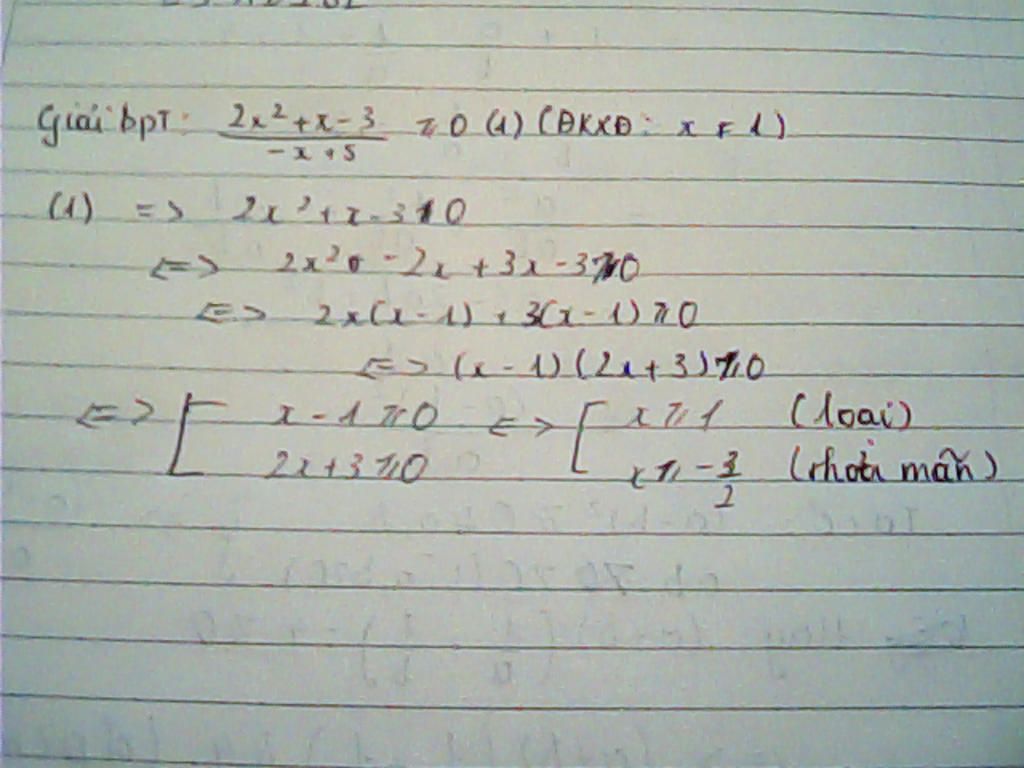 Giải bpT: \frac{2x^2+x-3}{-x+5} ⩾ 0 (1) (ĐKXĐ: x ≠ 1)
(1) => 2x^2+x-3 ⩾ 0
<=> 2x^2 - 2x + 3x - 3 ⩾ 0
<=> 2x(x-1) + 3(x-1) ⩾ 0
<=> (x-1)(2x+3) ⩾ 0
<=> [ x-1 ⩾ 0 <=> [ x ⩾ 1 (loại)
2x+3 ⩾ 0 x ⩾ -\frac{3}{2} (thoả mãn)